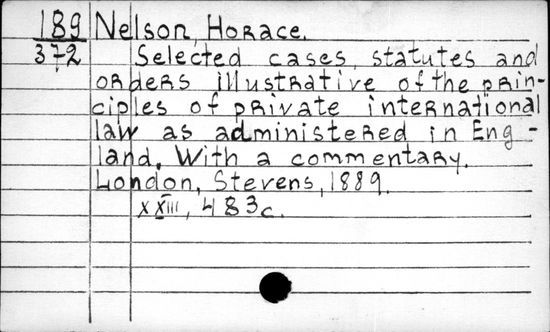 189 Nelson, Horace.
372 Selected cases, statutes and
orders illustrative of the prin-
ciples of private international
law as administered in Eng-
land. With a commentary.
London, Stevens, 1889.
XXIII, 483c.